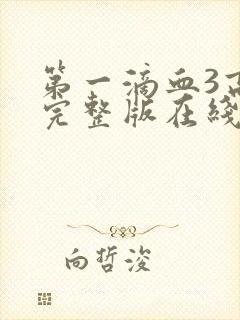 第一滴血3高
完整版在线
向哲浚